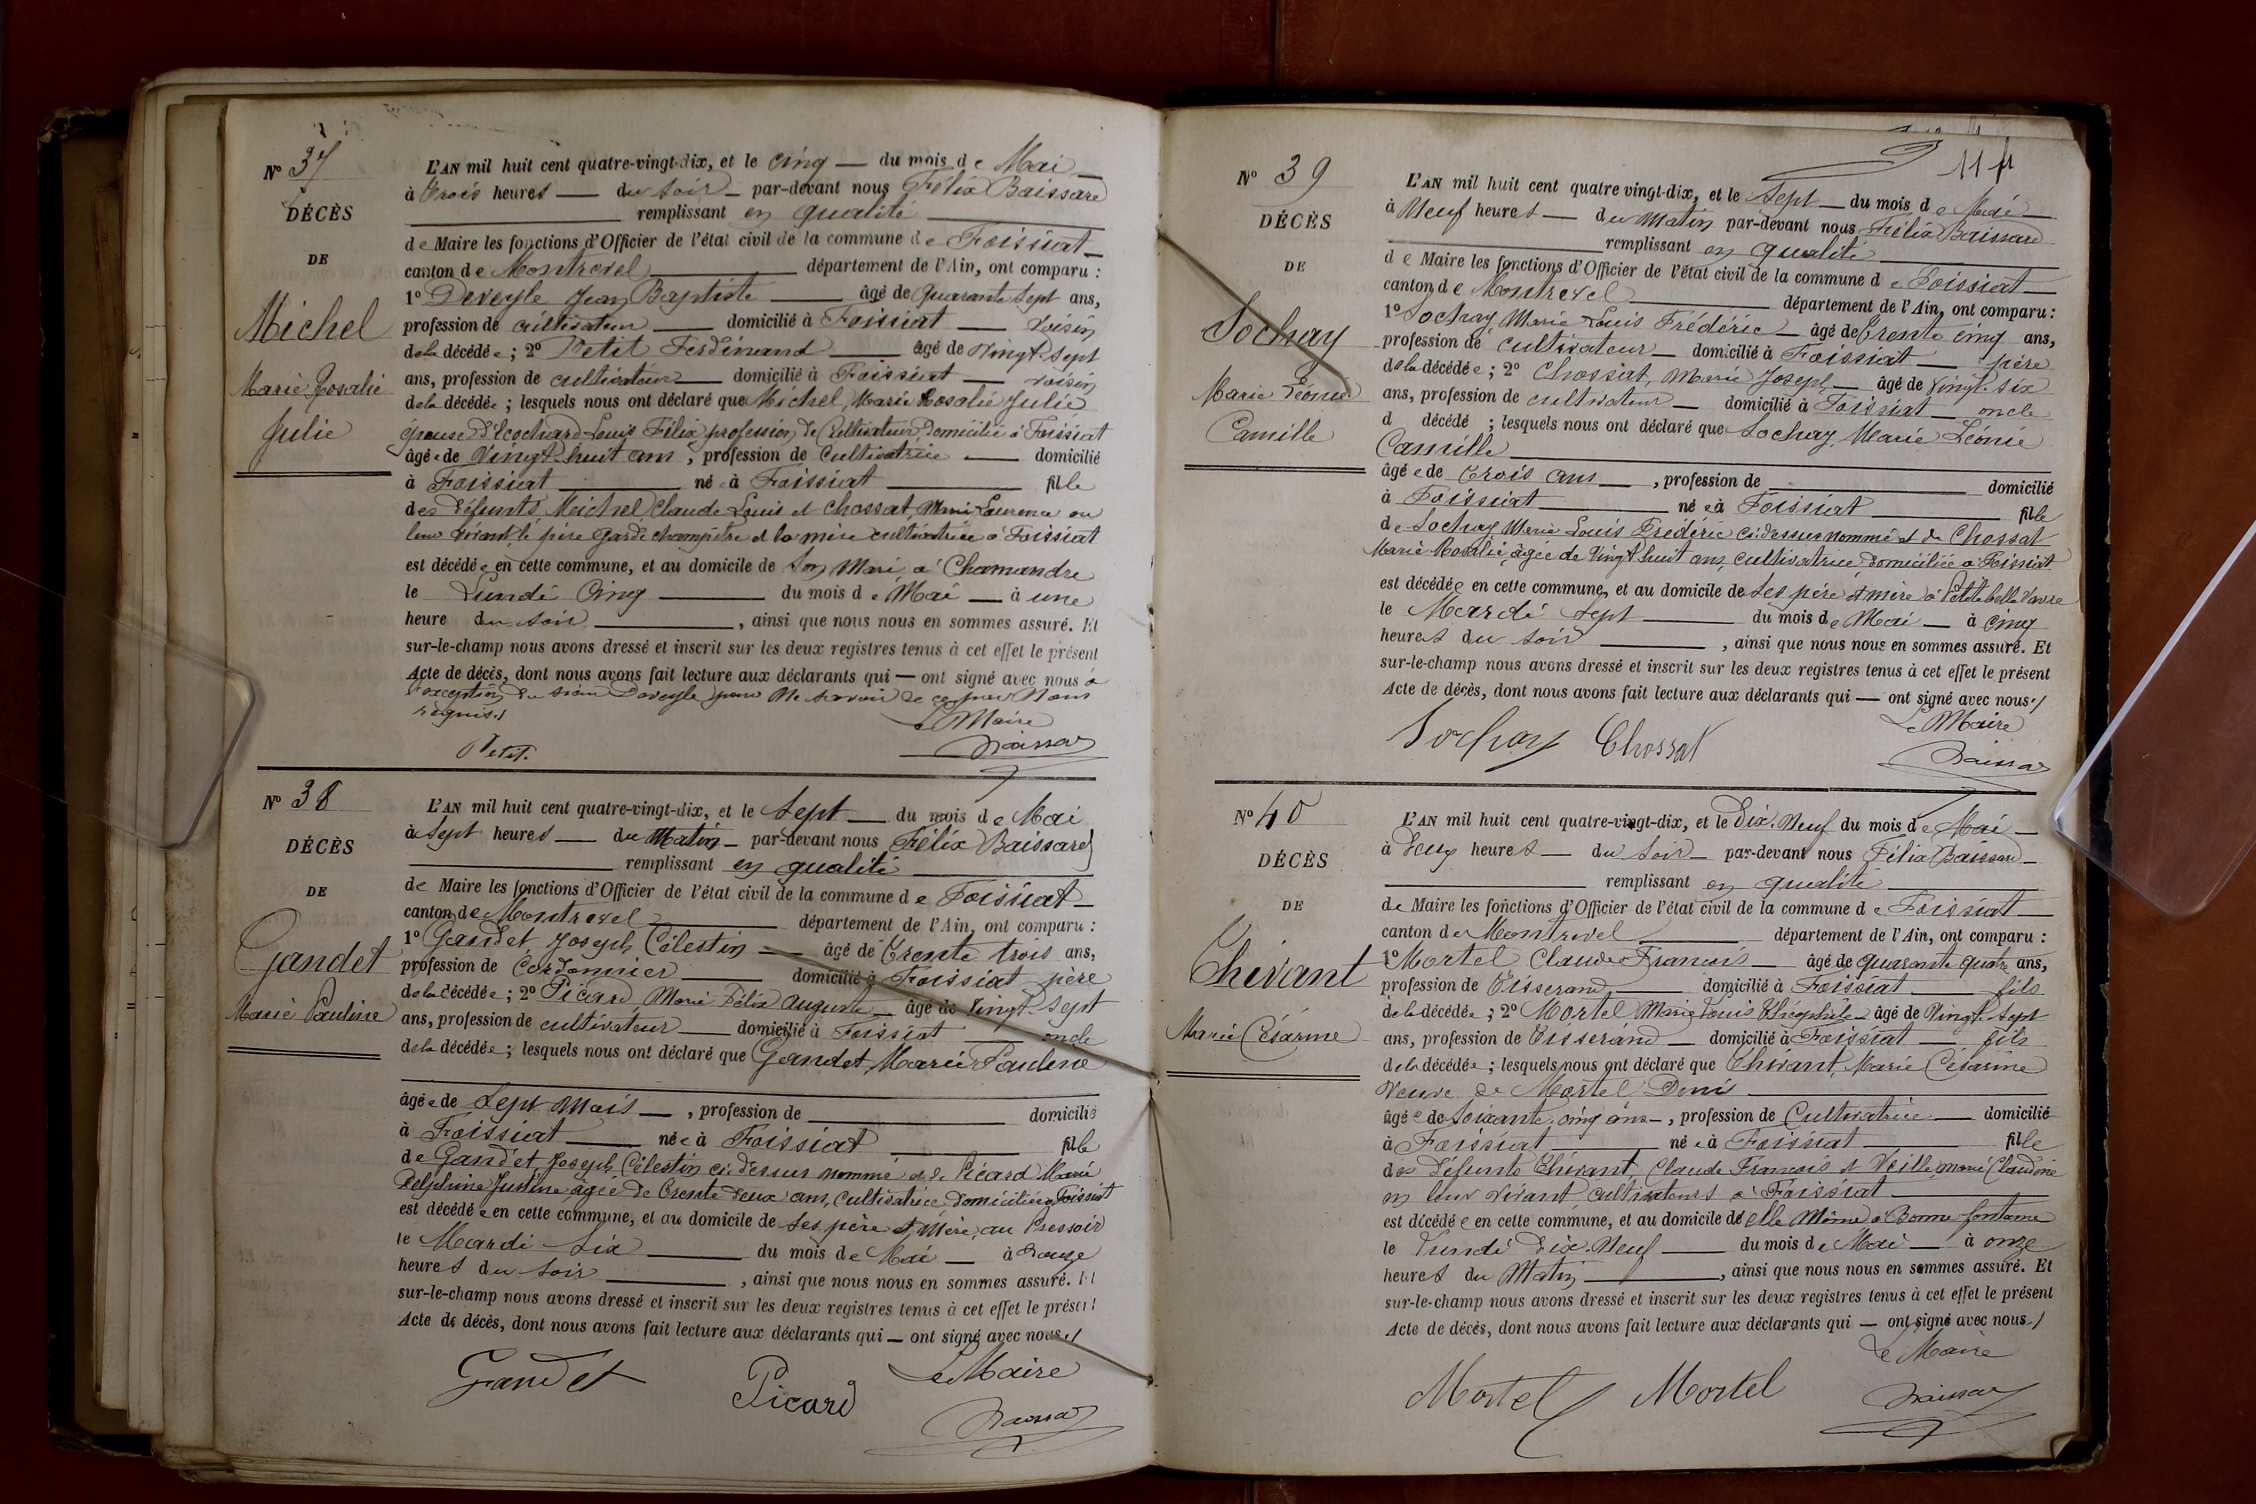 Nº 37
DÉCÈS
DE
Michel
Marie Rosalie
Julie
L'AN mil huit cent quatre-vingt-dix, et le cinq du mois de Mai
à trois heures du soir par-devant nous Félix Baissard
remplissant en qualité
de Maire les fonctions d'Officier de l'état civil de la commune de Foissiat
canton de Montrevel département de l'Ain, ont comparu :
1º Deveyle Jean Baptiste âgé de quarante sept ans,
profession de cultivateur domicilié à Foissiat voisin
de la décédée ; 2º Petit Ferdinand âgé de vingt-sept
ans, profession de cultivateur domicilié à Foissiat voisin
de la décédée ; lesquels nous ont déclaré que Michel, Marie Rosalie Julie
épouse d'Ecochard Louis Félix profession de Cultivateur domicilié à Foissiat
âgée de vingt-huit ans, profession de Cultivatrice domicilié
à Foissiat née à Foissiat fille
des défunts Michel Claude Louis et Chossat, Marie Laurence en
leur vivant le père garde champêtre et la mère cultivatrice à Foissiat
est décédée en cette commune, et au domicile de son mari à Chamandre
le Lundi Cinq du mois de Mai à une
heure du soir, ainsi que nous nous en sommes assuré. Et
sur-le-champ nous avons dressé et inscrit sur les deux registres tenus à cet effet le présent
Acte de décès, dont nous avons fait lecture aux déclarants qui — ont signé avec nous à
l'exception du sieur Deveyle pour ne savoir de ce par Nous
requis./
Le Maire
Petit
Baissard
Nº 38
DÉCÈS
DE
Gandet
Marie Pauline
L'AN mil huit cent quatre-vingt-dix, et le Sept du mois de Mai
à Sept heures du Matin par-devant nous Félix Baissard
remplissant en qualité
de Maire les fonctions d'Officier de l'état civil de la commune de Foissiat
canton de Montrevel département de l'Ain, ont comparu :
1º Gandet Joseph Célestin âgé de Trente trois ans,
profession de Cordonnier domicilié à Foissiat père
de la décédée ; 2º Picard Marie Félix Auguste âgé de vingt-sept
ans, profession de cultivateur domicilié à Foissiat oncle
de la décédée ; lesquels nous ont déclaré que Gandet, Marie Pauline
âgée de Sept Mois, profession de domicilié
à Foissiat née à Foissiat fille
de Gandet, Joseph Célestin ci-dessus nommé et de Picard Marie
Delphine Justine âgée de Trente deux ans, cultivatrice domiciliée à Foissiat
est décédée en cette commune, et au domicile de ses père et mère, au Pressoir
le Mardi Six du mois de Mai à onze
heures du soir, ainsi que nous nous en sommes assuré. Et
sur-le-champ nous avons dressé et inscrit sur les deux registres tenus à cet effet le présent
Acte de décès, dont nous avons fait lecture aux déclarants qui — ont signé avec nous./
Le Maire
Gandet Picard
Baissard
11
Nº 39
DÉCÈS
DE
Sochay
Marie Léonie
Camille
L'AN mil huit cent quatre vingt-dix, et le Sept du mois de Mai
à Neuf heures du Matin par-devant nous Félix Baissard
remplissant en qualité
de Maire les fonctions d'Officier de l'état civil de la commune de Foissiat
canton de Montrevel département de l'Ain, ont comparu :
1º Sochay, Marie Louis Frédéric âgé de Trente cinq ans,
profession de cultivateur domicilié à Foissiat père
de la décédée ; 2º Chossat, Marie Joseph âgé de vingt-six
ans, profession de cultivateur domicilié à Foissiat oncle
d décédé ; lesquels nous ont déclaré que Sochay, Marie Léonie
Camille
âgée de trois ans, profession de domicilié
à Foissiat née à Foissiat fille
de Sochay Marie Louis Frédéric ci-dessus nommé et de Chossat
Marie Rosalie, âgée de vingt huit ans, cultivatrice domiciliée à Foissiat
est décédée en cette commune, et au domicile de ses père et mère à Petite belle vavre
le Mardi Sept du mois de Mai à cinq
heures du soir, ainsi que nous nous en sommes assuré. Et
sur-le-champ nous avons dressé et inscrit sur les deux registres tenus à cet effet le présent
Acte de décès, dont nous avons fait lecture aux déclarants qui — ont signé avec nous./
Le Maire
Sochay Chossat
Baissard
Nº 40
DÉCÈS
DE
Thévant
Marie Césarine
L'AN mil huit cent quatre-vingt-dix, et le Dix-Neuf du mois de Mai
à deux heures du soir par-devant nous Félix Baissard
remplissant en qualité
de Maire les fonctions d'Officier de l'état civil de la commune de Foissiat
canton de Montrevel département de l'Ain, ont comparu :
1º Mortel Claude François âgé de quarante quatre ans,
profession de Tisserand domicilié à Foissiat fils
de la décédée ; 2º Mortel Marie Louis Théophile âgé de vingt-sept
ans, profession de Tisserand domicilié à Foissiat fils
de la décédée ; lesquels nous ont déclaré que Thévant, Marie Césarine
veuve de Mortel Denis
âgée de soixante cinq ans, profession de Cultivatrice domicilié
à Foissiat née à Foissiat fille
des défunts Thévant, Claude François et Veille Marie Claudine
en leur vivant cultivateurs à Foissiat
est décédée en cette commune, et au domicile de elle Même à Bonne fontaine
le Lundi Dix-Neuf du mois de Mai à onze
heures du Matin, ainsi que nous nous en sommes assuré. Et
sur-le-champ nous avons dressé et inscrit sur les deux registres tenus à cet effet le présent
Acte de décès, dont nous avons fait lecture aux déclarants qui — ont signé avec nous./
Le Maire
Mortel Mortel
Baissard